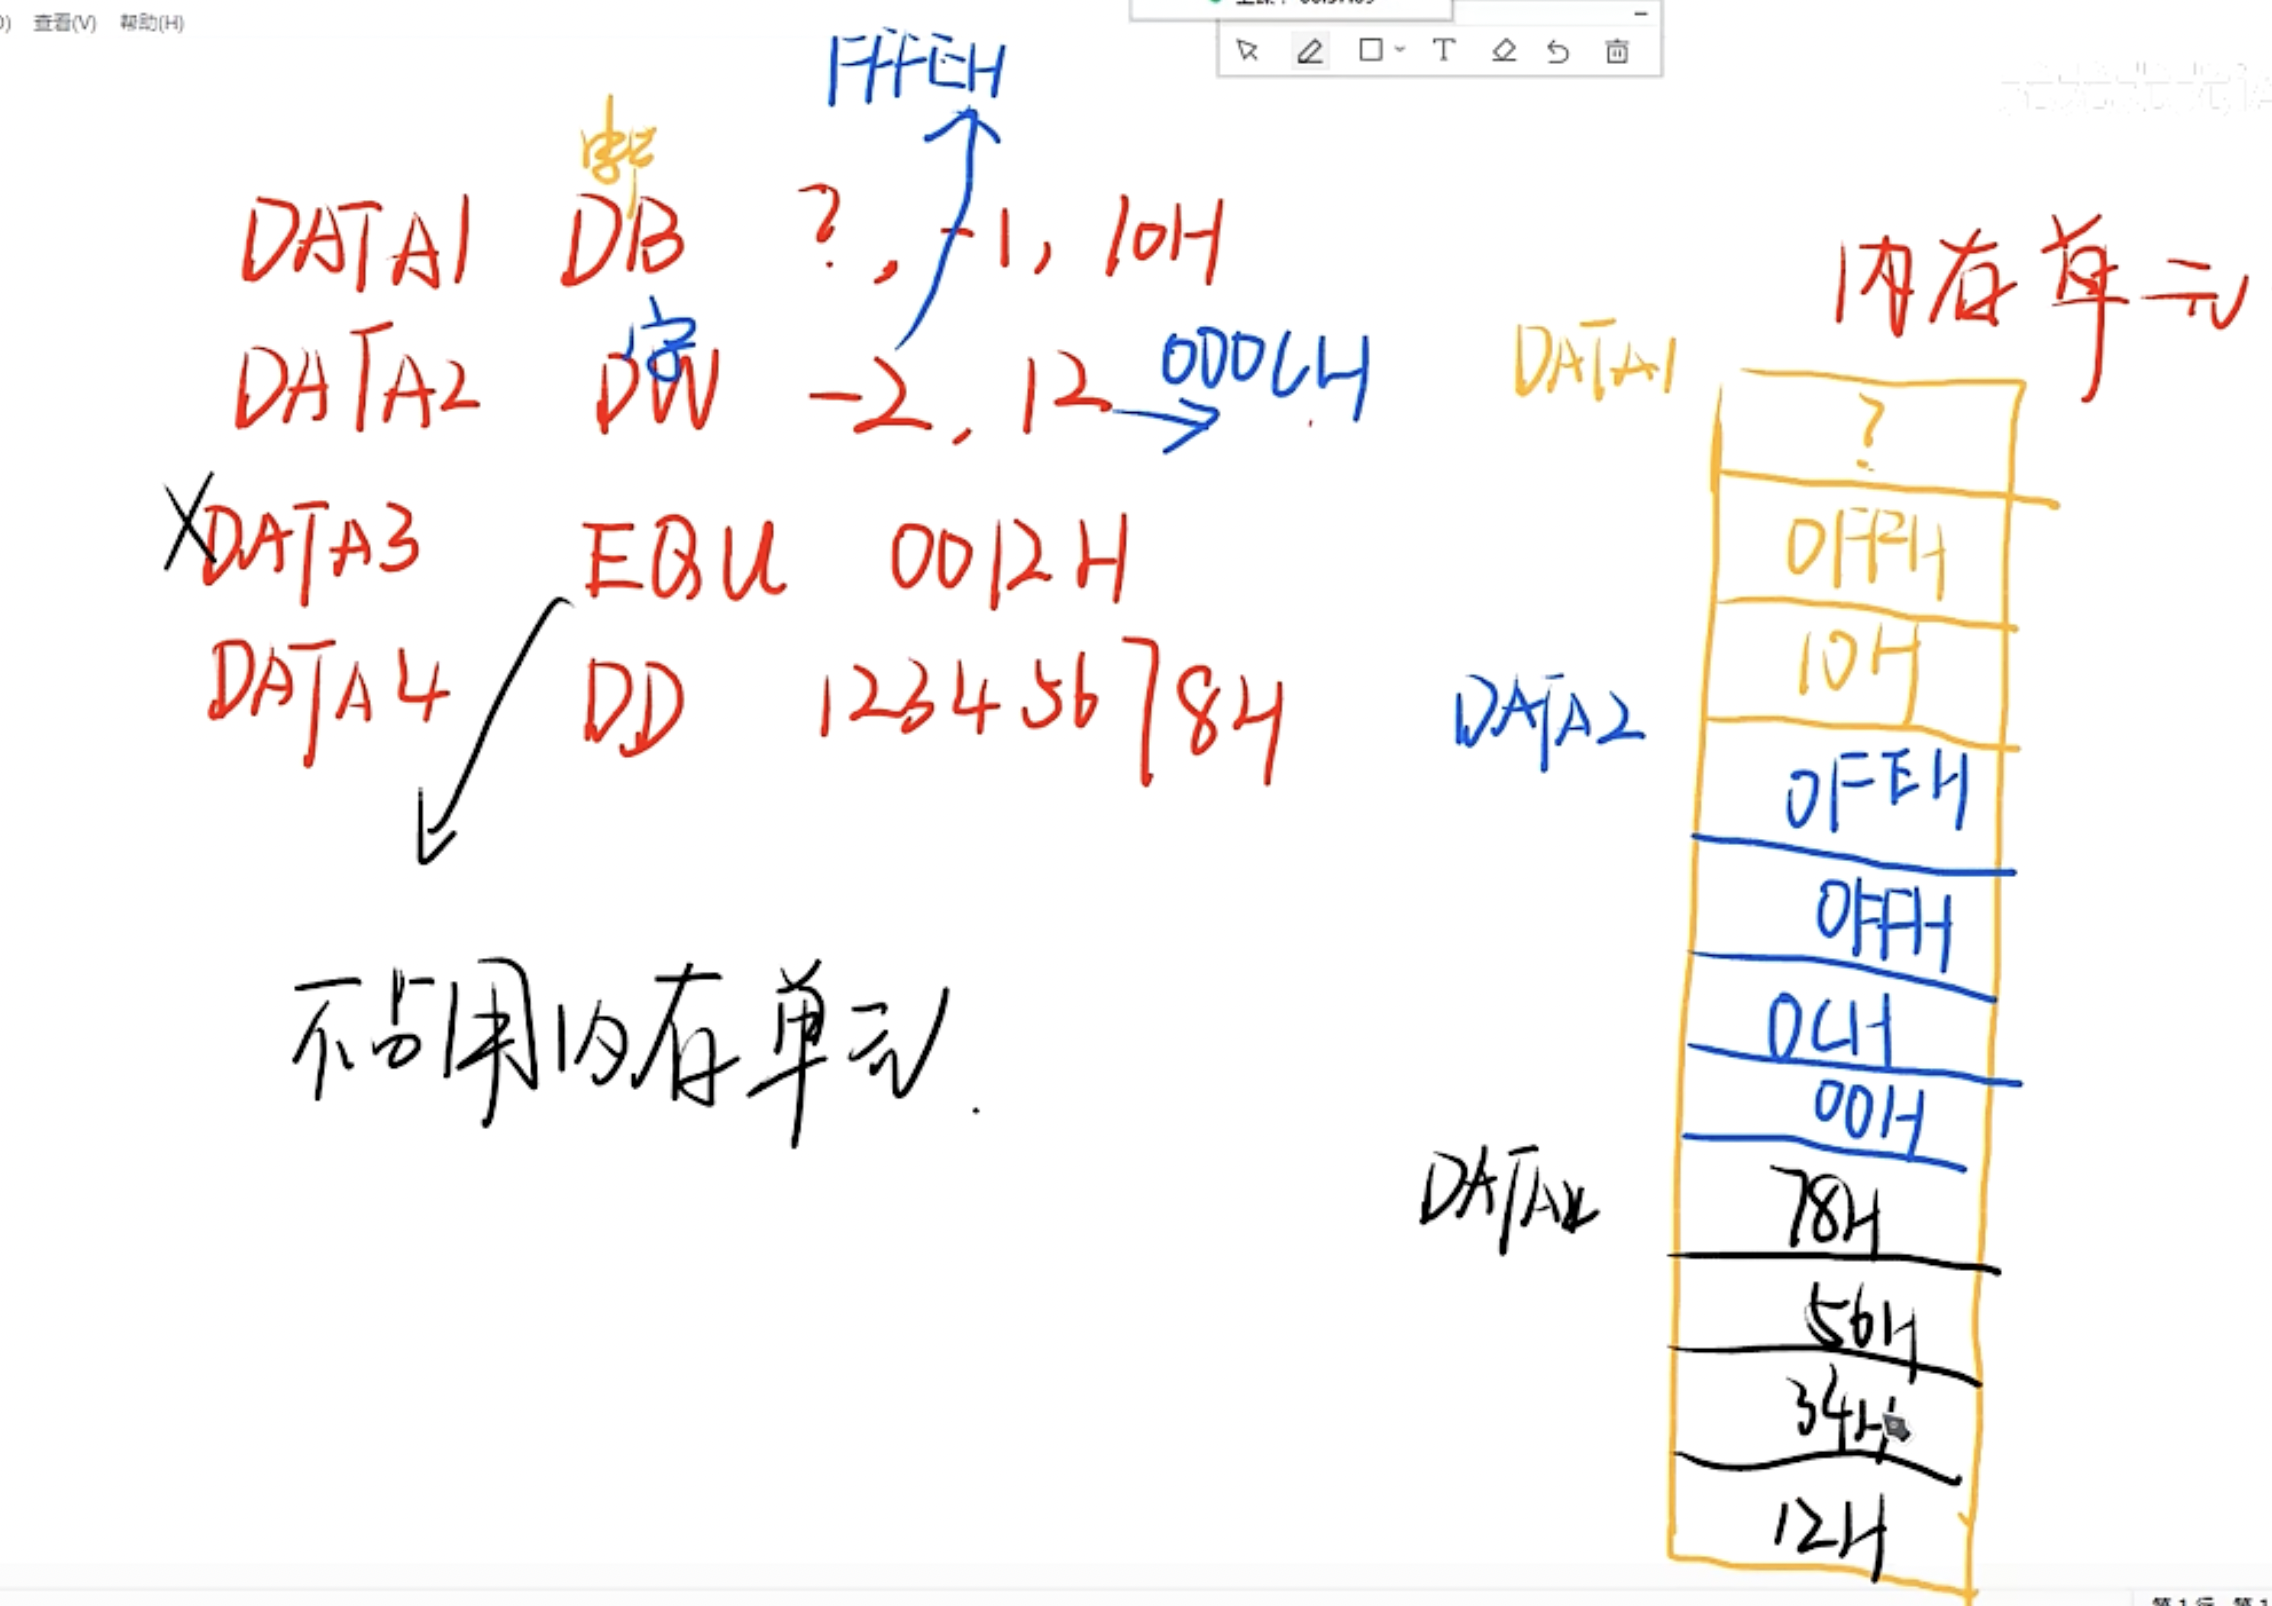 查看(V) 帮助(H)
FFFEH
DATA1 DB ?, -1, 10H
内存单元
字
DATA2 DW -2, 12 → 000CH
DATA1
?
DATA3 EQU 0012H
0FFH
DATA4 DD 12345678H
10H
DATA2
0FEH
0FFH
不占用内存单元.
0CH
00H
DATA4
78H
56H
34H
12H